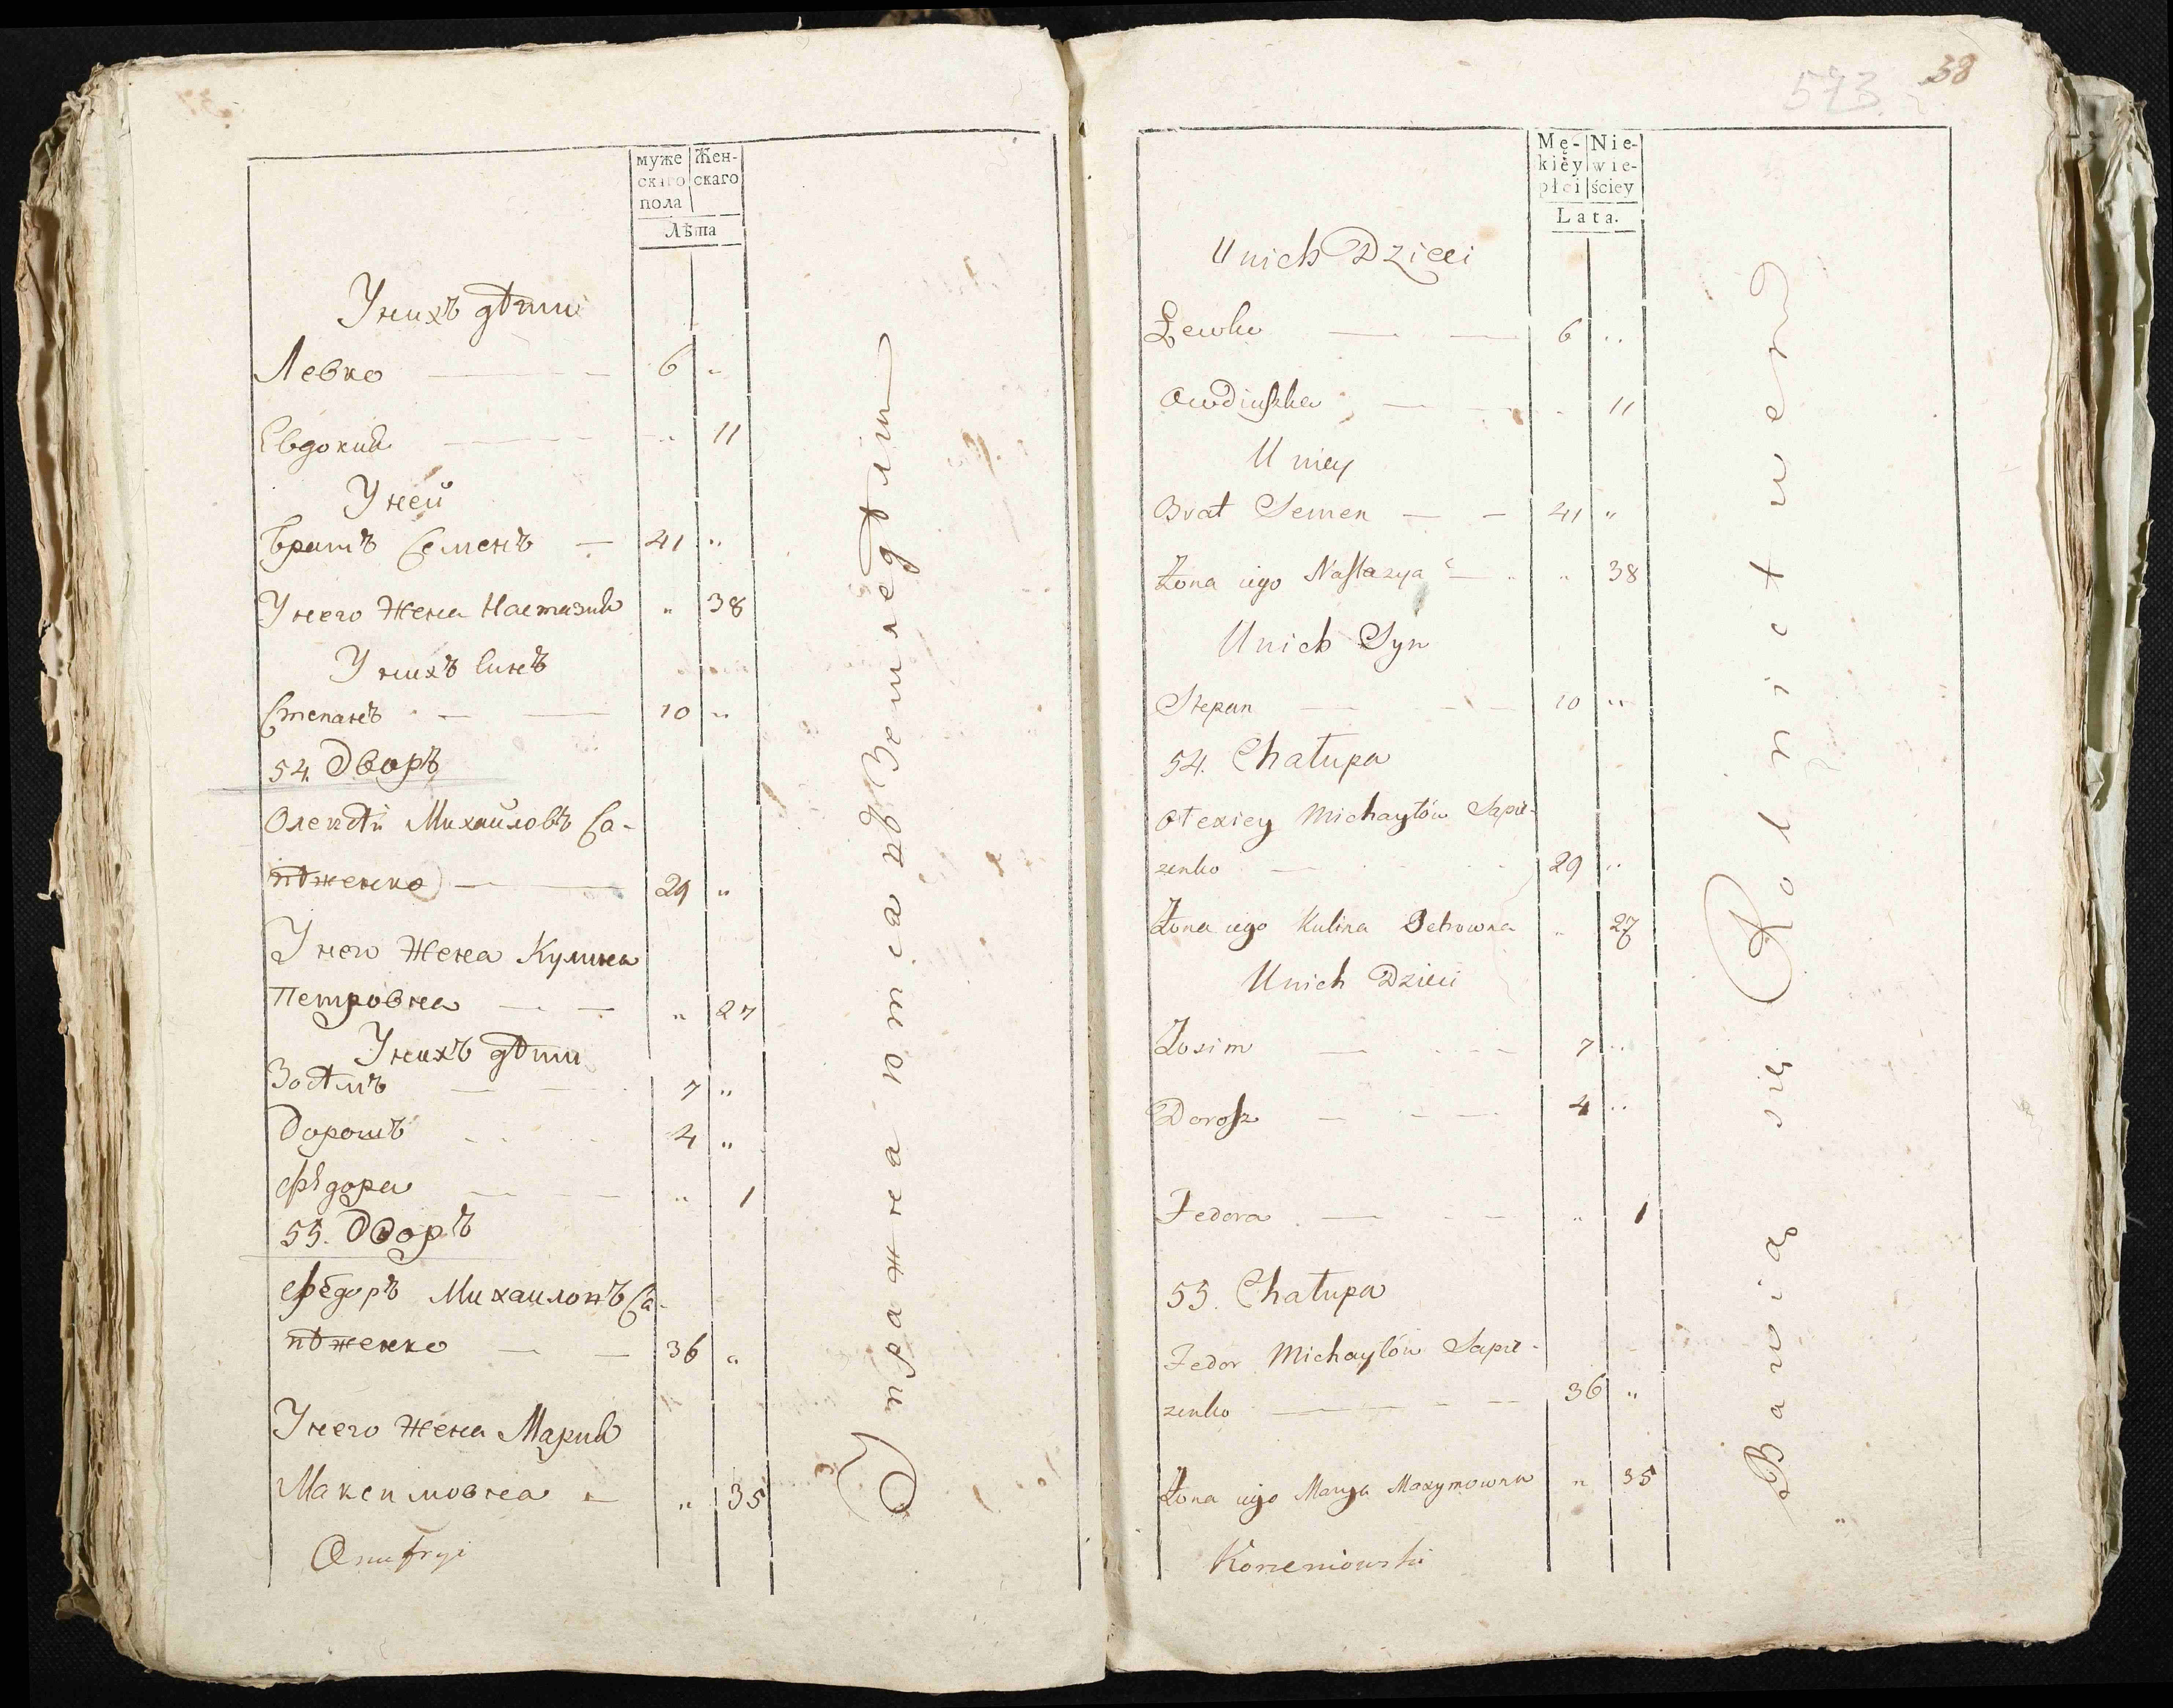 муже
скаго
пола
Жен-
скаго
Лѣта
У нихъ дѣти
Левко — 6 "
Евдокия — " 11
У ней
братъ Семенъ — 41 "
У него жена Настазия " 38
У нихъ Синъ
Степанъ — 10 "
54. Дворъ
Олексѣй Михайловъ Са-
пѣженко — 29 "
У него жена Кулина
Петровна — " 27
У нихъ дѣти
Зосѣмъ — 7 "
Дорошъ 4 "
Фѣдора — " 1
55. Дворъ
Фѣдоръ Михаиловъ Са-
пѣженко — 36 "
У него жена Мария
Максимовна — " 35
Onufryi
Упражнаютса въ Земледѣліи
38
573
Mę-
kiéy
płci
Nie-
wie-
ściey
Lata.
U nich Dzieci
Lewko — 6 "
Owdiuszka — " 11
U niey
Brat Semen — 41 "
Żona iego Nastazya — " 38
U nich Syn
Stepan — 10 "
54. Chałupa
Ołexiey Michayłów Sapie-
zenko — 29 "
Żona iego Kulina Petrowna " 27
U nich Dzieci
Zosim — 7 "
Dorosz — 4 "
Fedora — " 1
55. Chałupa
Fedor Michayłów Sapie-
zenko — 36 "
Żona iego Marya Maxymowna " 35
Korzeniowski
Bawią się Rolnictwem